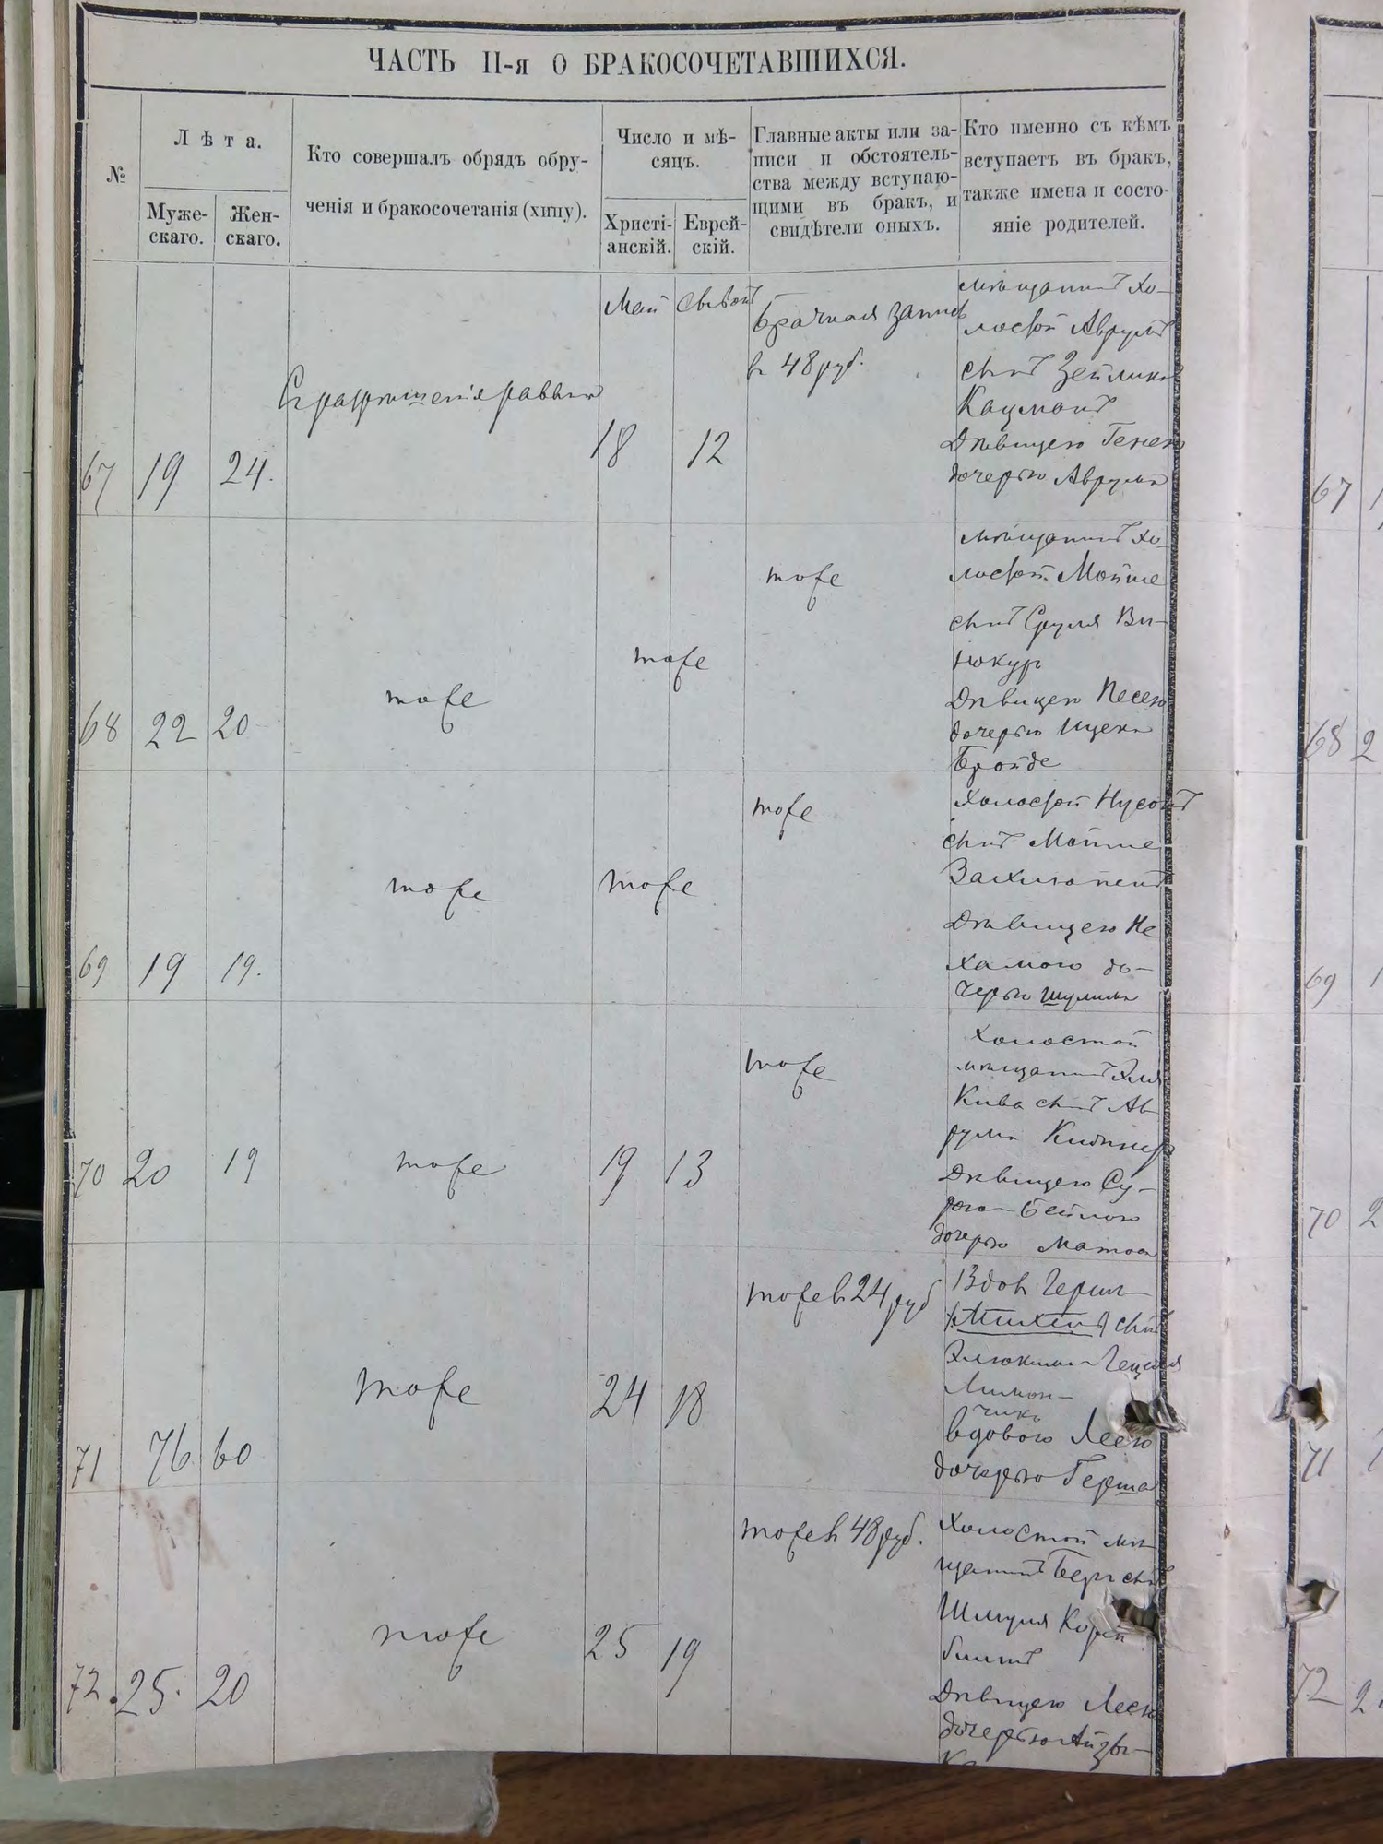 ЧАСТЬ II-я О БРАКОСОЧЕТАВШИХСЯ.
№
Лѣта.
Муже-
скаго.
Жен-
скаго.
Кто совершалъ обрядъ обру-
ченія и бракосочетанія (хипу).
Число и мѣ-
сяцъ.
Христі-
анскій.
Еврей-
скій.
Главные акты или за-
писи и обстоятель-
ства между вступаю-
щими въ бракъ, и
свидѣтели оныхъ.
Кто именно съ кѣмъ
вступаетъ въ бракъ,
также имена и состо-
яніе родителей.
67
19
24.
Съ разрѣшенія раввина
Май
18
12
Брачная запись
в 48 руб.
мѣщанинъ Хо-
лостой Аврумъ
сынъ Зейлика
Кацманъ
Дѣвицею
дочерью Аврума
68
22
20
тоже
тоже
тоже
мѣщанинъ Хо-
лостой Мойше
сынъ Сруля Ви-
нокуръ
Дѣвицею Песею
дочерью Ицека
Бройде
69
19
19.
тоже
тоже
тоже
Холостой Нусонъ
сынъ Мойше
Дѣвицею Не
хамою до-
черью Шулима
70
20
19
тоже
19
13
тоже
Холостой
мѣщанинъ
Кива сынъ Ав
рума
Дѣвицею Су-
рою-Бейлою
дочерью
71
76
60
тоже
24
18
тоже в 24 руб
Вдов Герш
сынъ
Лимон-
чикъ
вдовою Леею
дочерью Герша
72.
25.
20
тоже
25
19
тоже в 48 руб.
Холостой мѣ
щанинъ Беръ сынъ
Шмуля
Дѣвицею Леею
дочерью
67
68
2
69
1
70
2
71
72
2